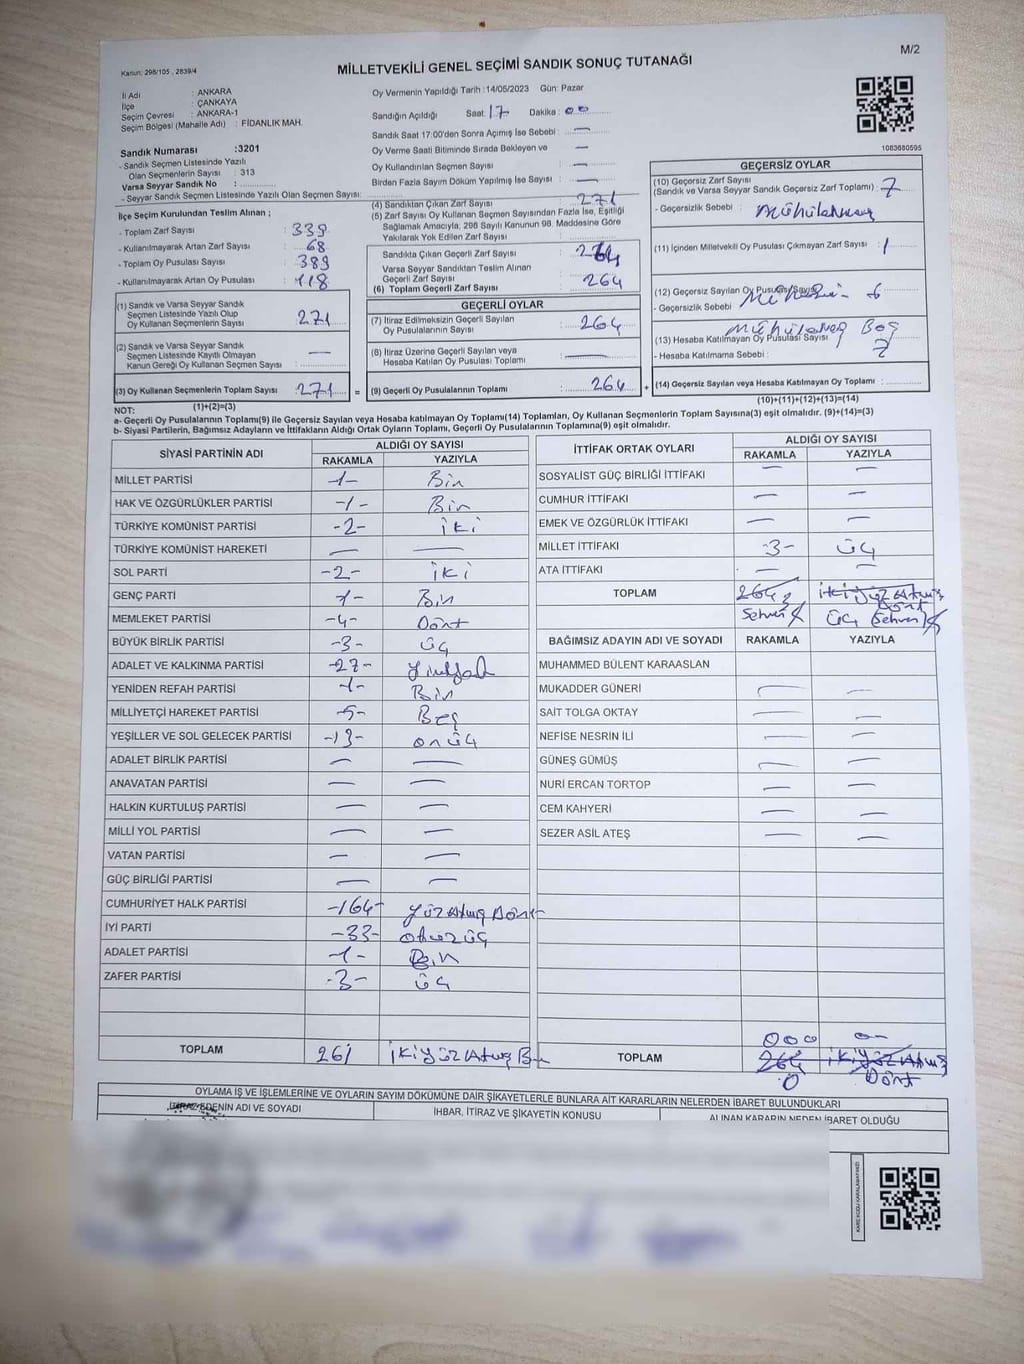 M/2
Kanun: 298/105 , 2839/4
MİLLETVEKİLİ GENEL SEÇİMİ SANDIK SONUÇ TUTANAĞI
İl Adı : ANKARA
İlçe : ÇANKAYA
Seçim Çevresi : ANKARA-1
Seçim Bölgesi (Mahalle Adı) : FİDANLIK MAH.
Sandık Numarası :3201
- Sandık Seçmen Listesinde Yazılı
Olan Seçmenlerin Sayısı : 313
Varsa Seyyar Sandık No :
- Seyyar Sandık Seçmen Listesinde Yazılı Olan Seçmen Sayısı:
İlçe Seçim Kurulundan Teslim Alınan ;
- Toplam Zarf Sayısı : 339
- Kullanılmayarak Artan Zarf Sayısı : 68
- Toplam Oy Pusulası Sayısı : 389
- Kullanılmayarak Artan Oy Pusulası : 118
(1) Sandık ve Varsa Seyyar Sandık
Seçmen Listesinde Yazılı Olup
Oy Kullanan Seçmenlerin Sayısı : 271
(2) Sandık ve Varsa Seyyar Sandık
Seçmen Listesinde Kayıtlı Olmayan
Kanun Gereği Oy Kullanan Seçmenlerin Sayısı : —
(3) Oy Kullanan Seçmenlerin Toplam Sayısı : 271 =
(1)+(2)=(3)
Oy Vermenin Yapıldığı Tarih :14/05/2023 Gün: Pazar
Sandığın Açıldığı Saat: 17 Dakika : 00
Sandık Saat 17:00'den Sonra Açımış İse Sebebi : —
Oy Verme Saati Bitiminde Sırada Bekleyen ve —
Oy Kullandırılan Seçmen Sayısı : —
Birden Fazla Sayım Döküm Yapılmış İse Sayısı : —
(4) Sandıktan Çıkan Zarf Sayısı : 271
(5) Zarf Sayısı Oy Kullanan Seçmen Sayısından Fazla İse, Eşitliği
Sağlamak Amacıyla, 298 Sayılı Kanunun 98. Maddesine Göre
Yakılarak Yok Edilen Zarf Sayısı :
Sandıkta Çıkan Geçerli Zarf Sayısı : 264
Varsa Seyyar Sandıktan Teslim Alınan
Geçerli Zarf Sayısı :
(6) Toplam Geçerli Zarf Sayısı : 264
GEÇERLİ OYLAR
(7) İtiraz Edilmeksizin Geçerli Sayılan
Oy Pusulalarının Sayısı : 264
(8) İtiraz Üzerine Geçerli Sayılan veya
Hesaba Katılan Oy Pusulası Toplamı : —
(9) Geçerli Oy Pusulalarının Toplamı : 264 +
1083680595
GEÇERSİZ OYLAR
(10) Geçersiz Zarf Sayısı
(Sandık ve Varsa Seyyar Sandık Geçersiz Zarf Toplamı) : 7
- Geçersizlik Sebebi :
(11) İçinden Milletvekili Oy Pusulası Çıkmayan Zarf Sayısı : 1
(12) Geçersiz Sayılan Oy Pusulası Sayısı : 6
- Geçersizlik Sebebi :
Boş
(13) Hesaba Katılmayan Oy Pusulası Sayısı :
- Hesaba Katılmama Sebebi : 7
(14) Geçersiz Sayılan veya Hesaba Katılmayan Oy Toplamı :
(10)+(11)+(12)+(13)=(14)
NOT:
a- Geçerli Oy Pusulalarının Toplamı(9) ile Geçersiz Sayılan veya Hesaba katılmayan Oy Toplamı(14) Toplamları, Oy Kullanan Seçmenlerin Toplam Sayısına(3) eşit olmalıdır. (9)+(14)=(3)
b- Siyasi Partilerin, Bağımsız Adayların ve İttifakların Aldığı Ortak Oyların Toplamı, Geçerli Oy Pusulalarının Toplamına(9) eşit olmalıdır.
SİYASİ PARTİNİN ADI ALDIĞI OY SAYISI
RAKAMLA YAZIYLA
MİLLET PARTİSİ -1- Bir
HAK VE ÖZGÜRLÜKLER PARTİSİ -1- Bir
TÜRKİYE KOMÜNİST PARTİSİ -2- iki
TÜRKİYE KOMÜNİST HAREKETİ — —
SOL PARTİ -2- iki
GENÇ PARTİ -1- Bir
MEMLEKET PARTİSİ -4- Dört
BÜYÜK BİRLİK PARTİSİ -3- üç
ADALET VE KALKINMA PARTİSİ -27-
YENİDEN REFAH PARTİSİ -1- Bir
MİLLİYETÇİ HAREKET PARTİSİ -5- Beş
YEŞİLLER VE SOL GELECEK PARTİSİ -13- onüç
ADALET BİRLİK PARTİSİ — —
ANAVATAN PARTİSİ — —
HALKIN KURTULUŞ PARTİSİ — —
MİLLİ YOL PARTİSİ — —
VATAN PARTİSİ — —
GÜÇ BİRLİĞİ PARTİSİ — —
CUMHURİYET HALK PARTİSİ -164- yüzAtmış Dört
İYİ PARTİ -33- otuzüç
ADALET PARTİSİ -1- Bir
ZAFER PARTİSİ -3- üç
TOPLAM 261 ikiyüzAtmış Bir
İTTİFAK ORTAK OYLARI ALDIĞI OY SAYISI
RAKAMLA YAZIYLA
SOSYALİST GÜÇ BİRLİĞİ İTTİFAKI — —
CUMHUR İTTİFAKI — —
EMEK VE ÖZGÜRLÜK İTTİFAKI — —
MİLLET İTTİFAKI -3- üç
ATA İTTİFAKI — —
TOPLAM 264 3 ikiyüzAtmış
Dört
Sehven üç (Sehven)
BAĞIMSIZ ADAYIN ADI VE SOYADI RAKAMLA YAZIYLA
MUHAMMED BÜLENT KARAASLAN
MUKADDER GÜNERİ — —
SAİT TOLGA OKTAY — —
NEFİSE NESRİN İLİ — —
GÜNEŞ GÜMÜŞ — —
NURİ ERCAN TORTOP — —
CEM KAHYERİ — —
SEZER ASİL ATEŞ — —
000
TOPLAM 264 ikiyüzAtmış
0 Dört
OYLAMA İŞ VE İŞLEMLERİNE VE OYLARIN SAYIM DÖKÜMÜNE DAİR ŞİKAYETLERLE BUNLARA AİT KARARLARIN NELERDEN İBARET BULUNDUKLARI
İTİRAZ EDENİN ADI VE SOYADI İHBAR, İTİRAZ VE ŞİKAYETİN KONUSU ALINAN KARARIN NEDEN İBARET OLDUĞU